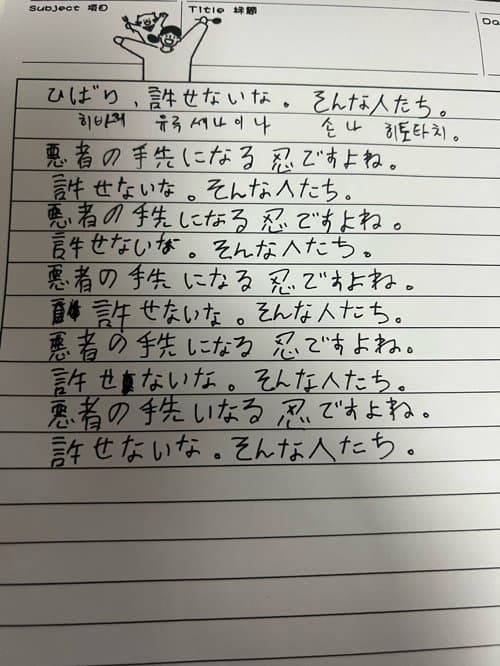 Subject 項目 Title 標題 Da
ひばり、許せないな。そんな人たち。
히바리 유루세나이나 손나 히토타치。
悪者の手先になる忍ですよね。
許せないな。そんな人たち。
悪者の手先になる忍ですよね。
許せないな。そんな人たち。
悪者の手先になる忍ですよね。
許せないな。そんな人たち。
悪者の手先になる忍ですよね。
許せないな。そんな人たち。
悪者の手先いなる忍ですよね。
許せないな。そんな人たち。